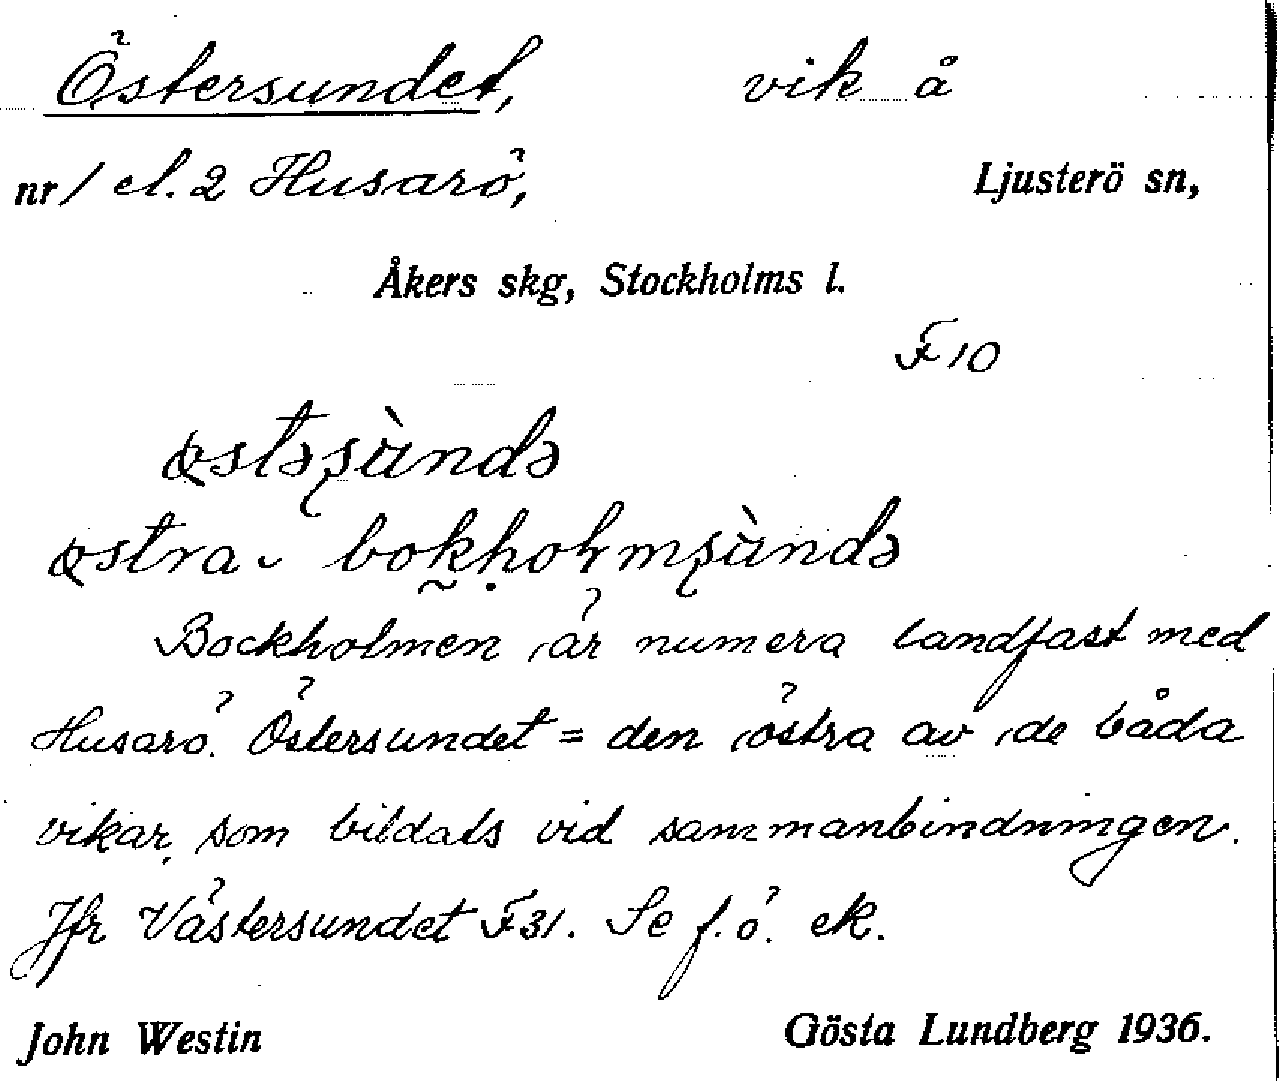 Östersundet, vik å
nr 1 el. 2 Husarö, Ljusterö sn,
Åkers skg, Stockholms l.
F 10
østəʂùndə
østra - bokholmʂùndə
Bockholmen är numera landfast med
Husarö. Östersundet = den östra av de båda
vikar, som bildats vid sammanbindningen.
Jfr Västersundet F31. Se f.ö. ek.
John Westin Gösta Lundberg 1936.